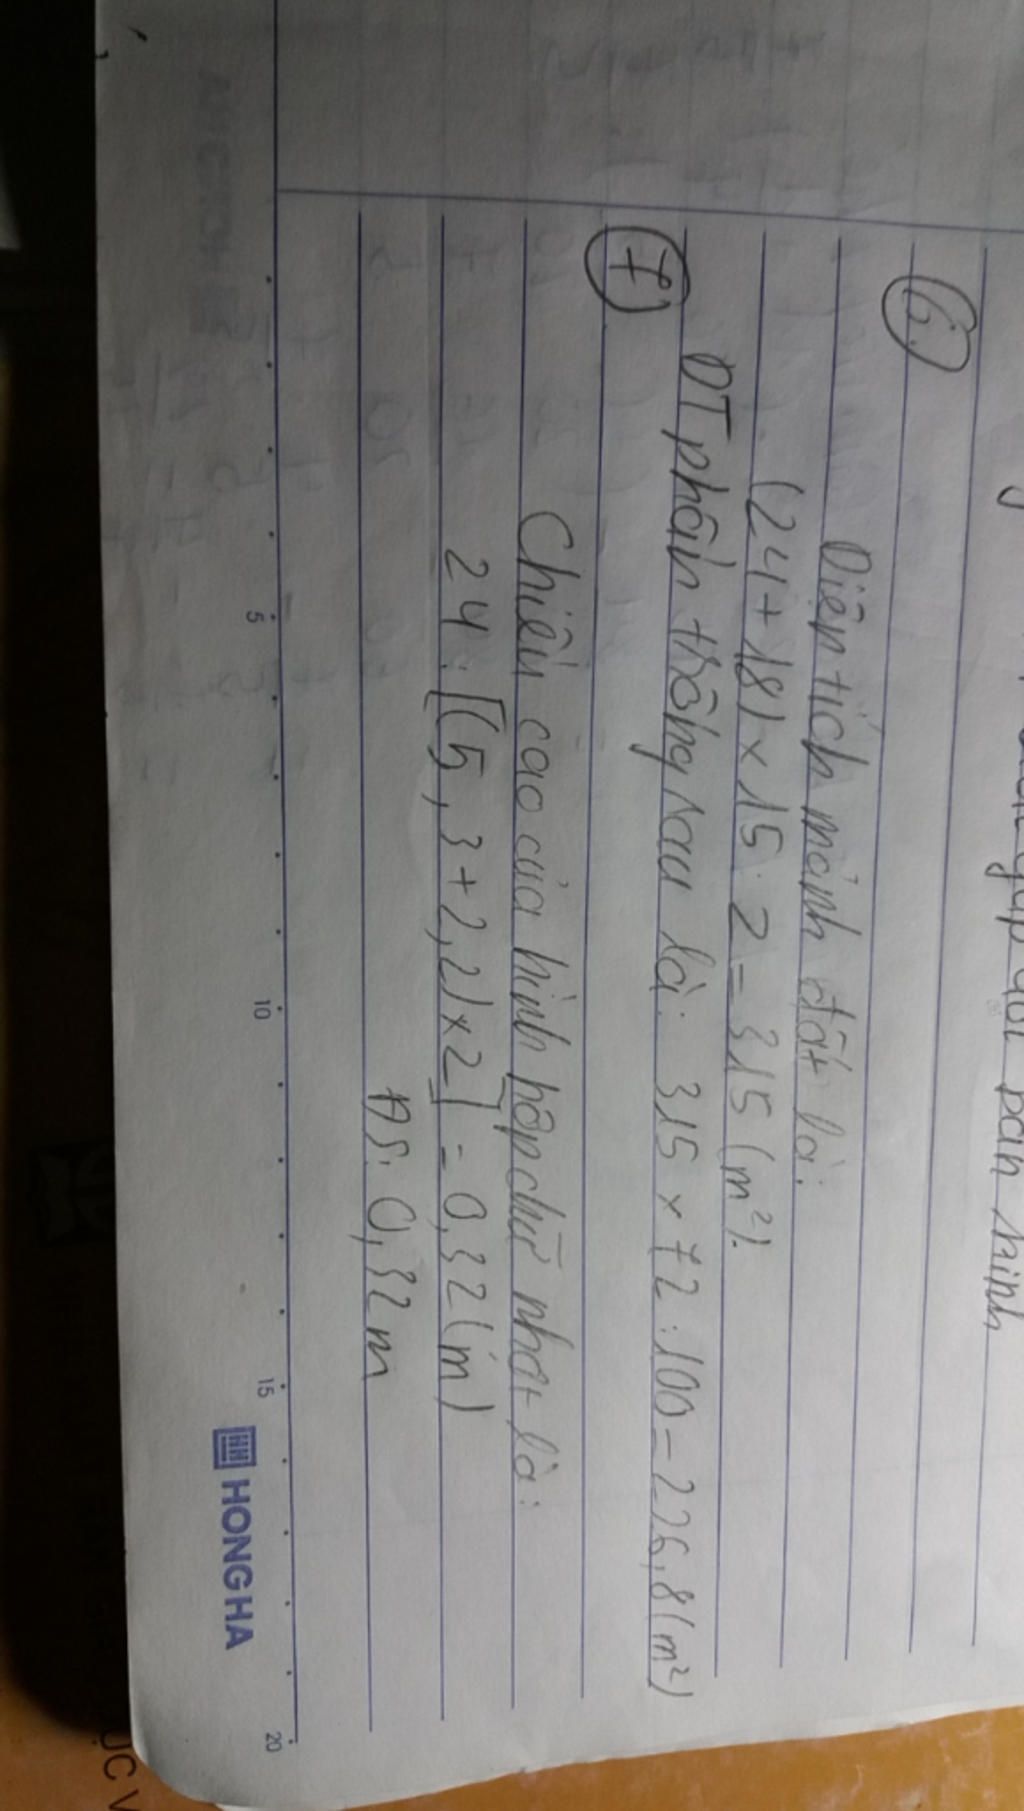 bạn mình
6.)
Diện tích mảnh đất là:
(24+18) x 15 : 2 = 315 (m²).
DT phần trồng rau là: 315 x 72 : 100 = 226,8 (m²)
7)
Chiều cao của hình hộp chữ nhật là:
24 : [(5,3+2,2) x 2] = 0,32 (m)
ĐS: 0,32 m
5 10 15 20
HONG HA
ỤC V